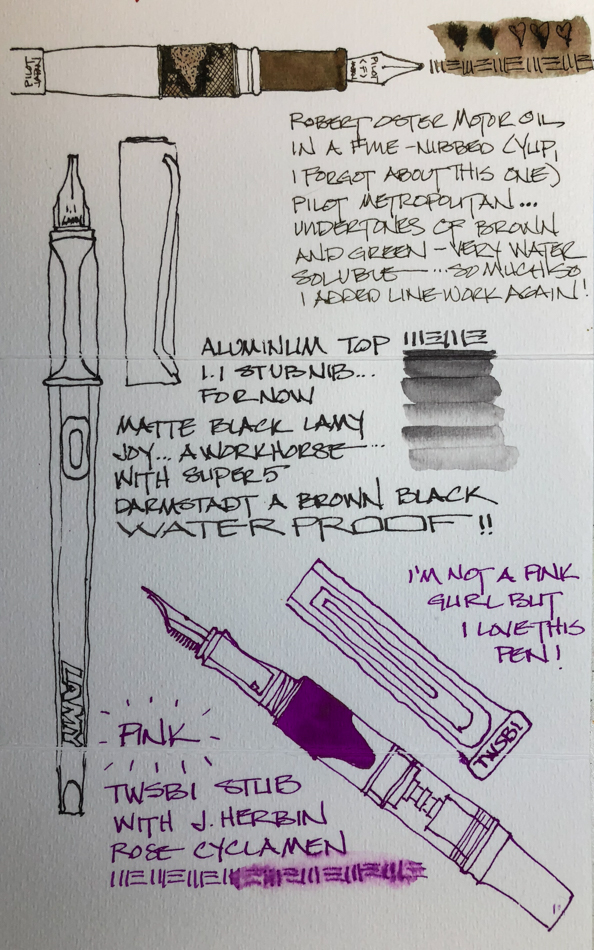 PILOT
JAPAN
PILOT
(F)
JAPAN
ROBERT OSTER MOTOR OIL
IN A FINE-NIBBED (YUP,
I FORGOT ABOUT THIS ONE)
PILOT METROPOLITAN...
UNDERTONES OF BROWN
AND GREEN - VERY WATER
SOLUBLE ... SO MUCH SO
I ADDED LINE WORK AGAIN!
ALUMINUM TOP
1.1 STUB NIB...
FOR NOW
MATTE BLACK LAMY
JOY... A WORKHORSE ...
WITH SUPER 5
DARMSTADT A BROWN BLACK
WATERPROOF!!
LAMY
I'M NOT A PINK
GURL BUT
I LOVE THIS
PEN!
TWSBI
PINK
TWSBI STUB
WITH J. HERBIN
ROSE CYCLAMEN